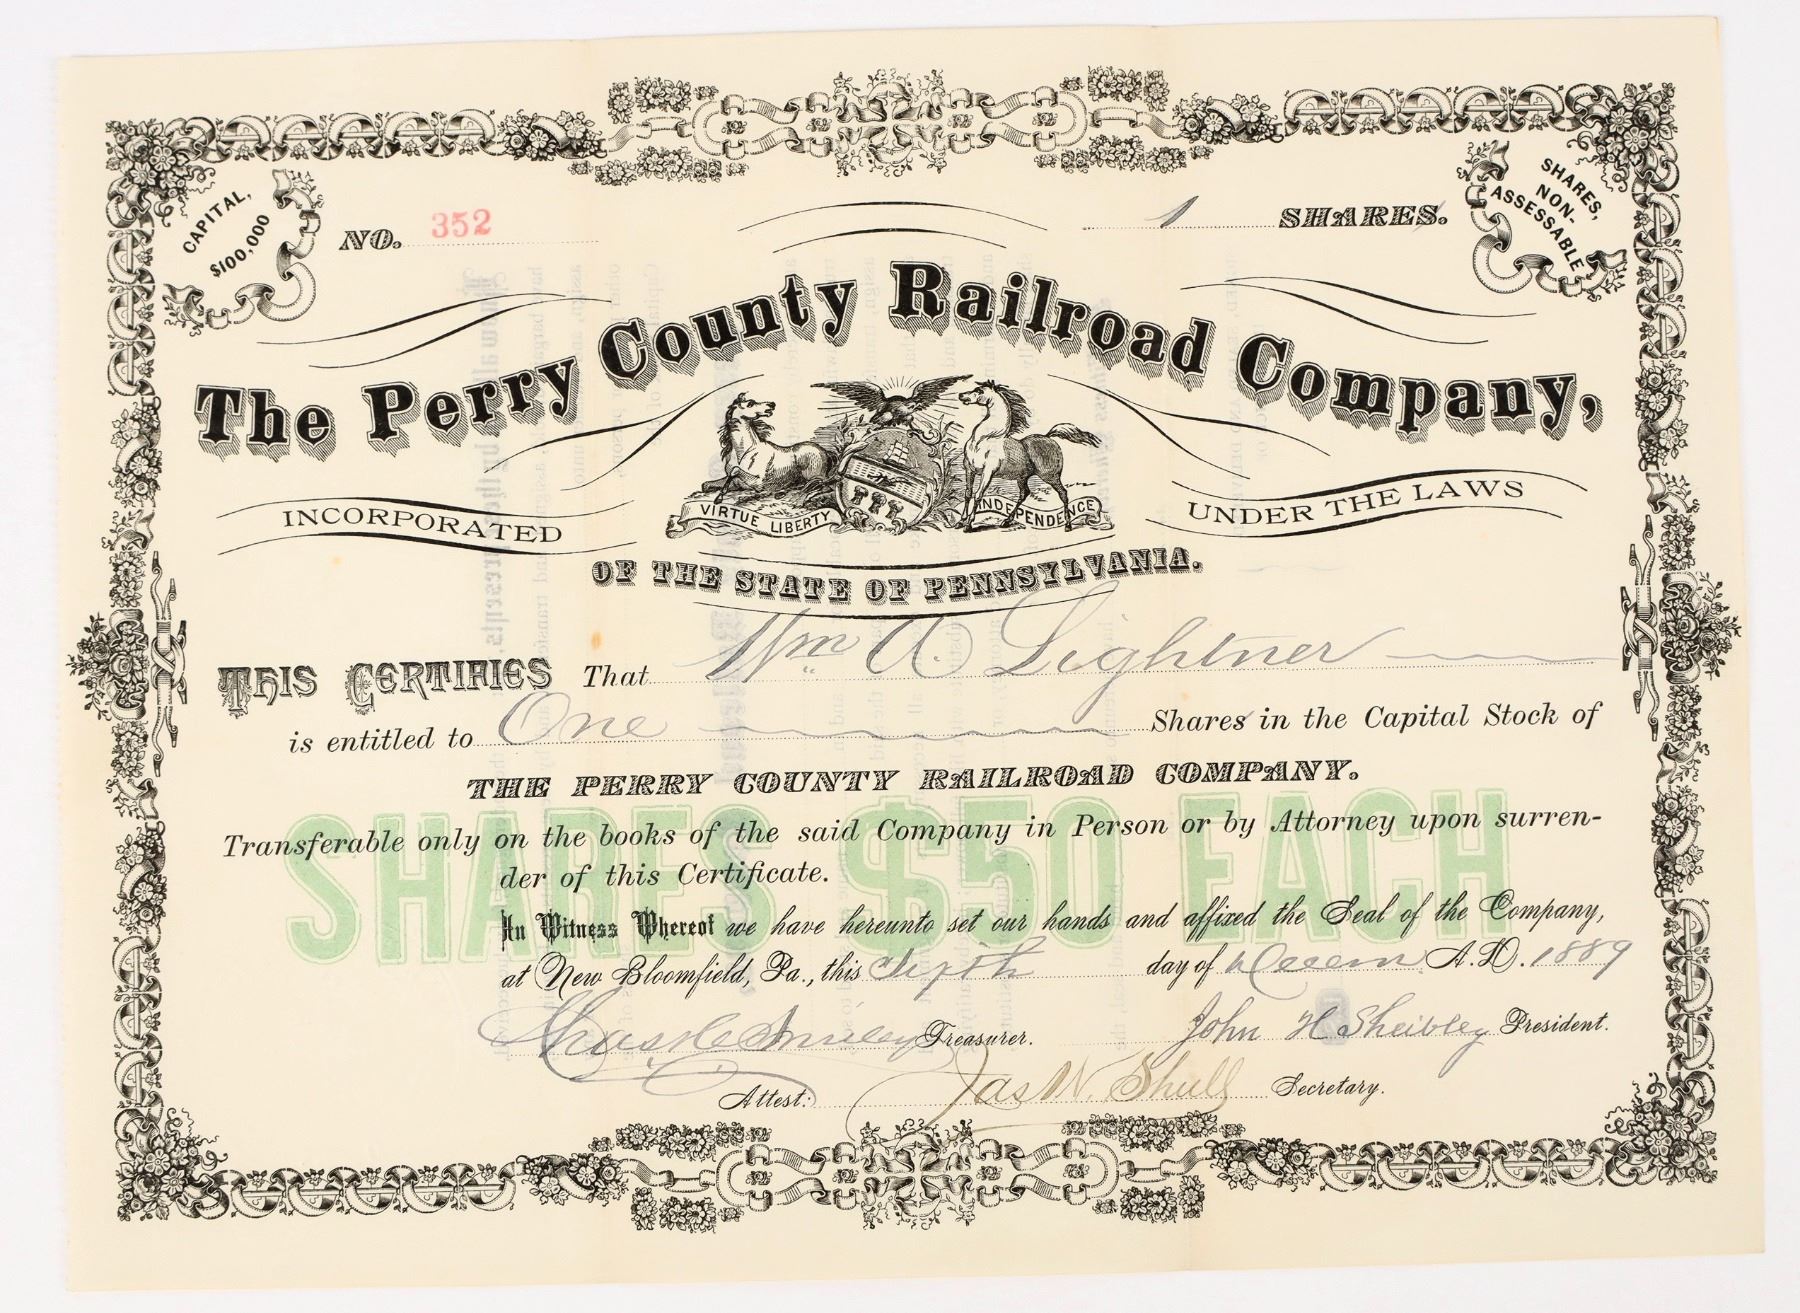 CAPITAL,
$100,000
NO. 352
1 SHARES.
SHARES,
NON-
ASSESSABLE
The Perry County Railroad Company,
VIRTUE LIBERTY INDEPENDENCE
INCORPORATED UNDER THE LAWS
OF THE STATE OF PENNSYLVANIA.
THIS CERTIFIES That Wm A. Lightner
is entitled to One Shares in the Capital Stock of
THE PERRY COUNTY RAILROAD COMPANY.
SHARES $50 EACH
Transferable only on the books of the said Company in Person or by Attorney upon surren-
der of this Certificate.
In Witness Whereof we have hereunto set our hands and affixed the Seal of the Company,
at New Bloomfield, Pa., this day of Decem. A.D. 1889
Treasurer. John H Sheibley President.
Attest: Jas W. Shull Secretary.